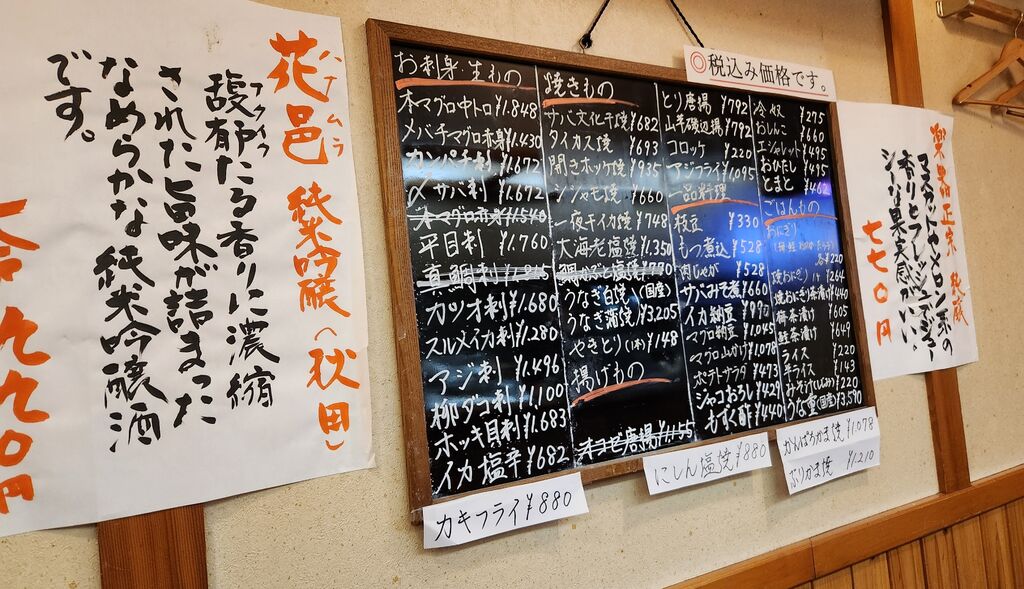 花邑 純米吟醸(秋田)
ハナムラ
馥郁たる香りに濃縮
フクイク
された旨味が詰まった
なめらかな純米吟醸酒
です。
九九〇円
◎税込み価格です。
お刺身 生もの
本マグロ中トロ ¥1.848
メバチマグロ赤身 ¥1.430
カンパチ刺 ¥1.672
〆サバ刺 ¥1.672
本マグロ赤身 ¥1.540
平目刺 ¥1.760
真鯛刺 ¥1.815
カツオ刺 ¥1.680
スルメイカ刺 ¥1.280
アジ刺 ¥1.496
柳ダコ刺 ¥1.100
ホッキ貝刺 ¥1.683
イカ塩辛 ¥682
焼きもの
サバ文化干焼 ¥682
タイカス焼 ¥693
開きホッケ焼 ¥935
シシャモ焼 ¥660
一夜干イカ焼 ¥748
大海老塩焼 ¥1.350
鯛かぶと塩焼 ¥770
うなぎ白焼 (国産)
うなぎ蒲焼 ¥3.205
やきとり(1本) ¥148
揚げもの
オコゼ唐揚 ¥1.155
とり唐揚 ¥792
山芋磯辺揚 ¥792
コロッケ ¥220
アジフライ ¥1.095
一品料理
枝豆 ¥330
もつ煮込 ¥528
肉じゃが ¥528
サバみそ煮 ¥660
イカ納豆 ¥990
マグロ納豆 ¥1.045
マグロ山かけ ¥1.078
ポテトサラダ ¥473
ジャコおろし ¥429
もずく酢 ¥440
冷奴 ¥275
おしんこ ¥660
エシャレット ¥495
おひたし ¥495
とまと ¥462
ごはんもの
おにぎり
各¥220
焼おにぎり 1ヶ ¥264
焼おにぎり茶漬け ¥440
梅茶漬け ¥605
鮭茶漬け ¥649
ライス ¥220
半ライス ¥143
みそ汁(しじみ) ¥220
うな重(国産) ¥3.590
カキフライ ¥880
にしん塩焼 ¥880
かんぱちかま焼 ¥1.078
ぶりかま焼 ¥1.210
楽器正宗
マスカットやメロン系の
香りとフレッシュジュー
シーな果実感がいい。
七七〇円